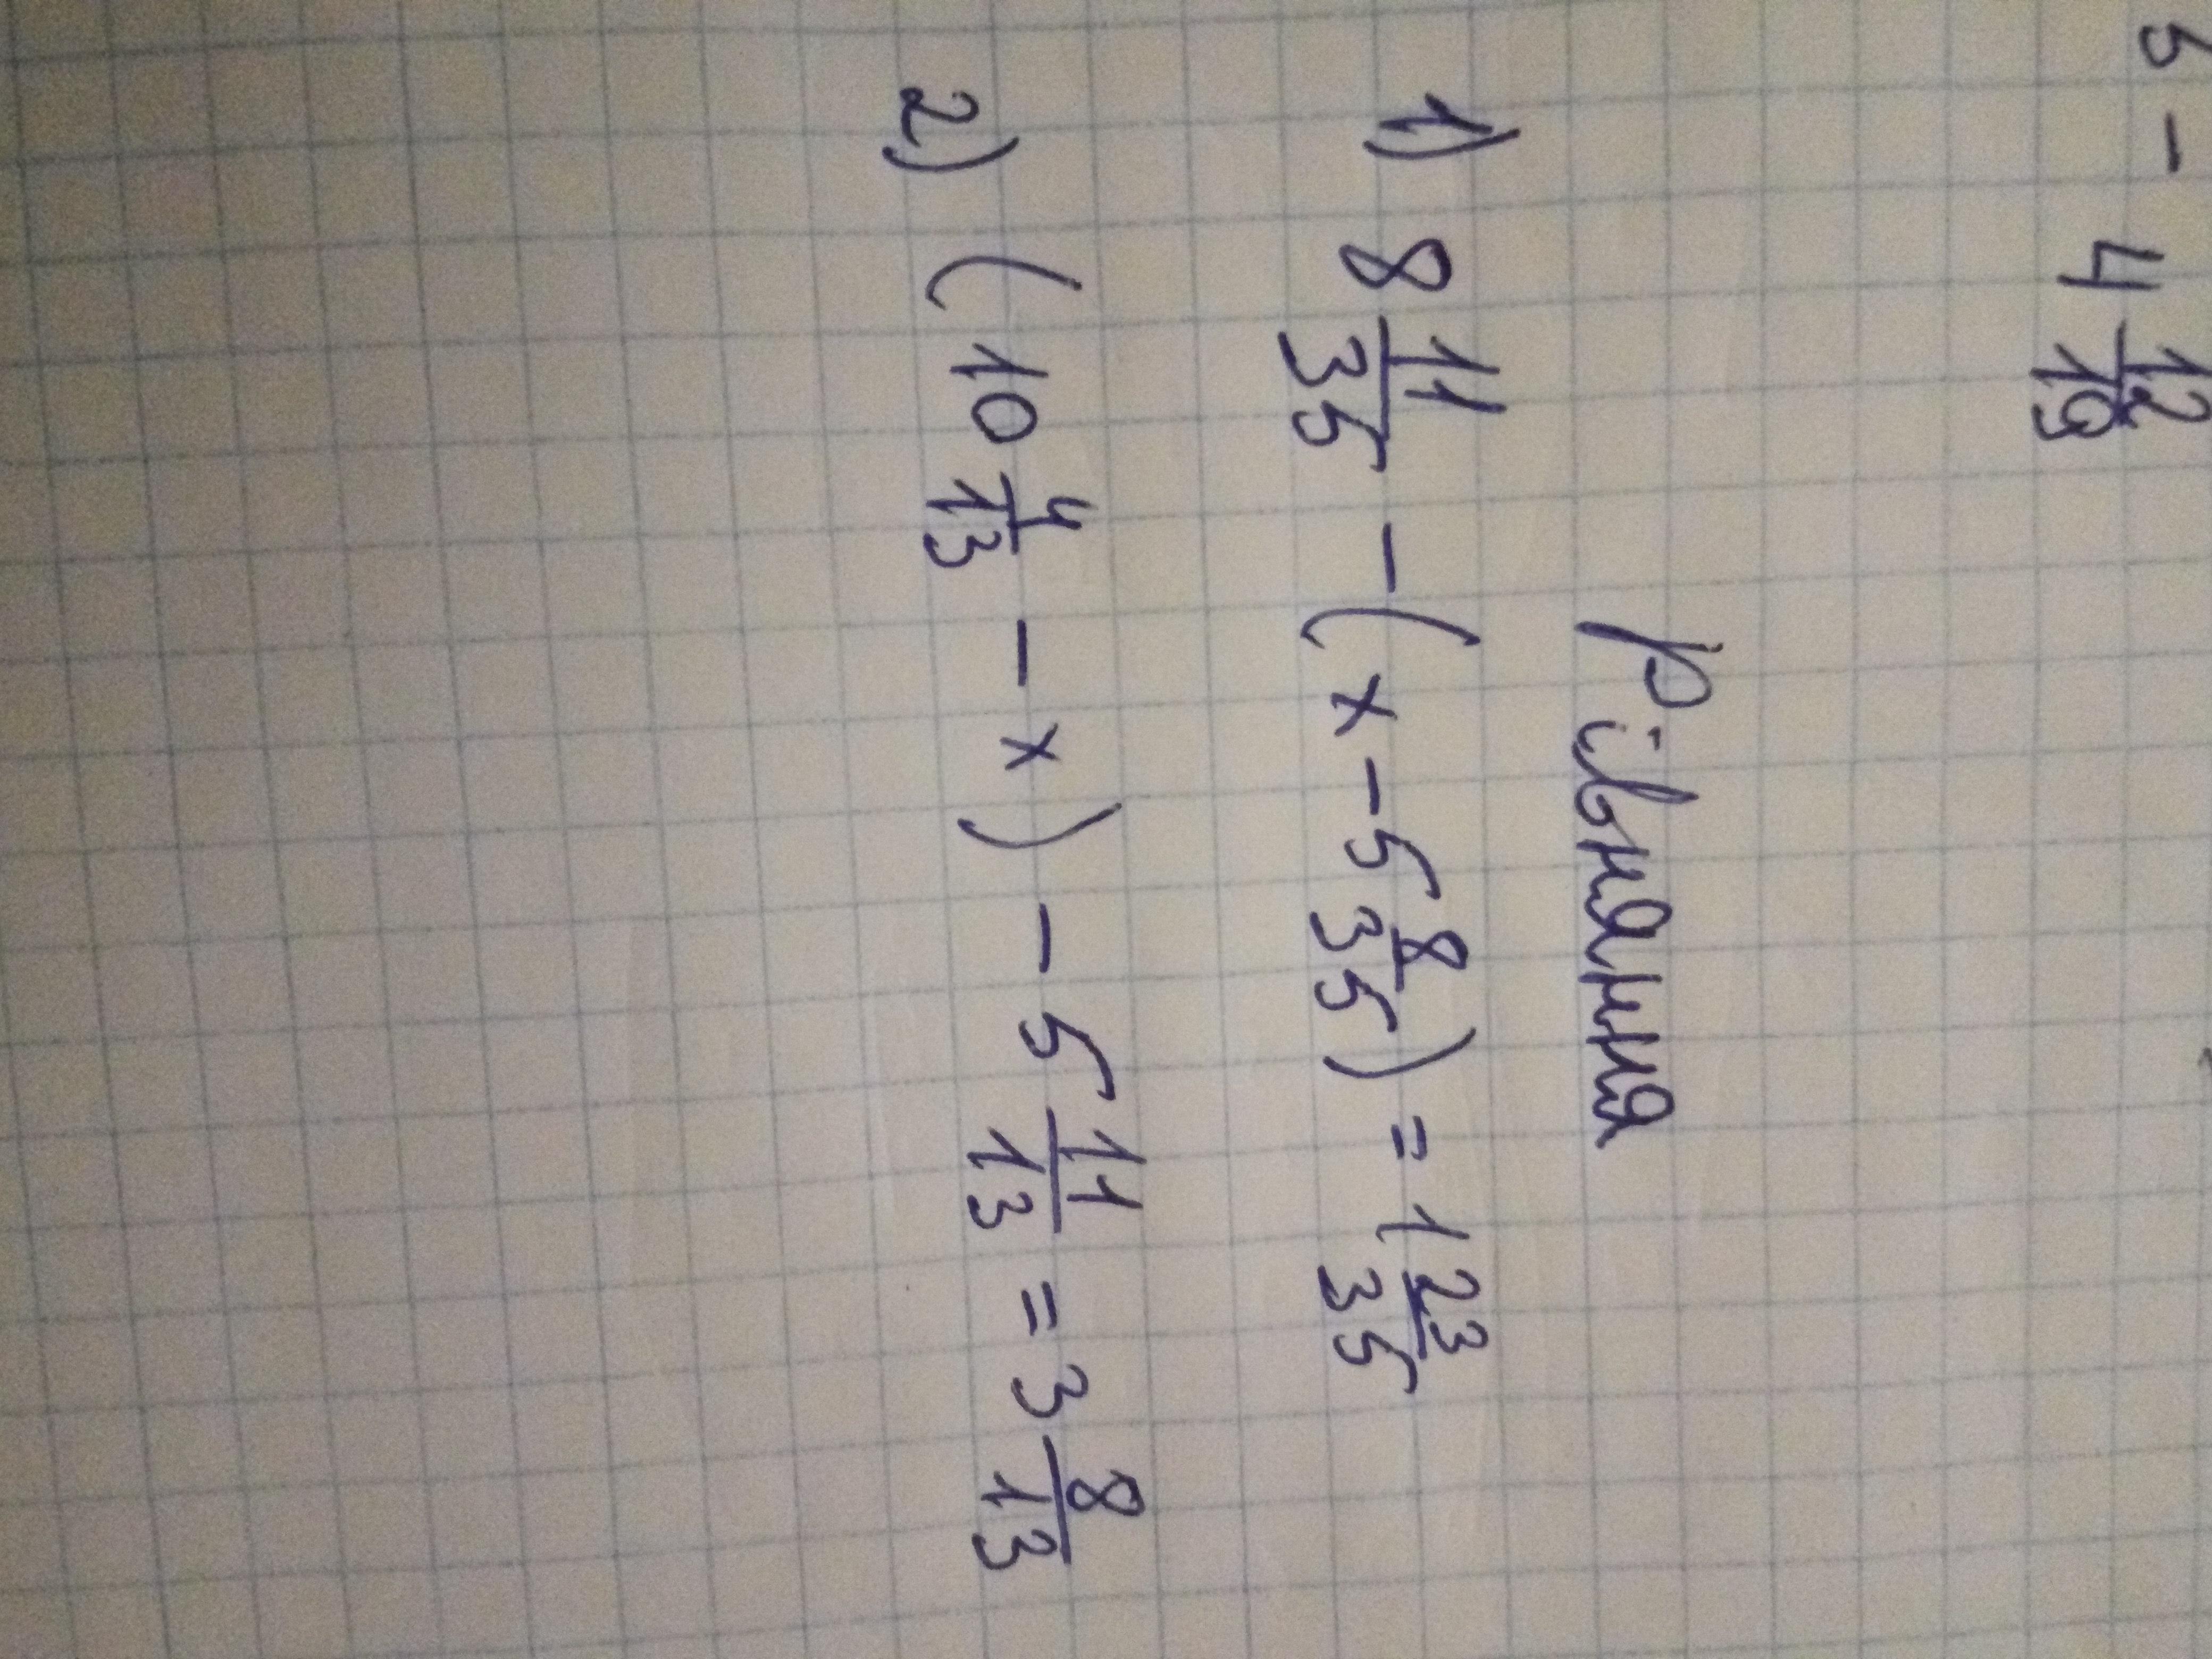 - 4 12/19
Рівняння
1) 8 11/35 - (x - 5 8/35) = 1 23/35
2) (10 4/13 - x) - 5 11/13 = 3 8/13